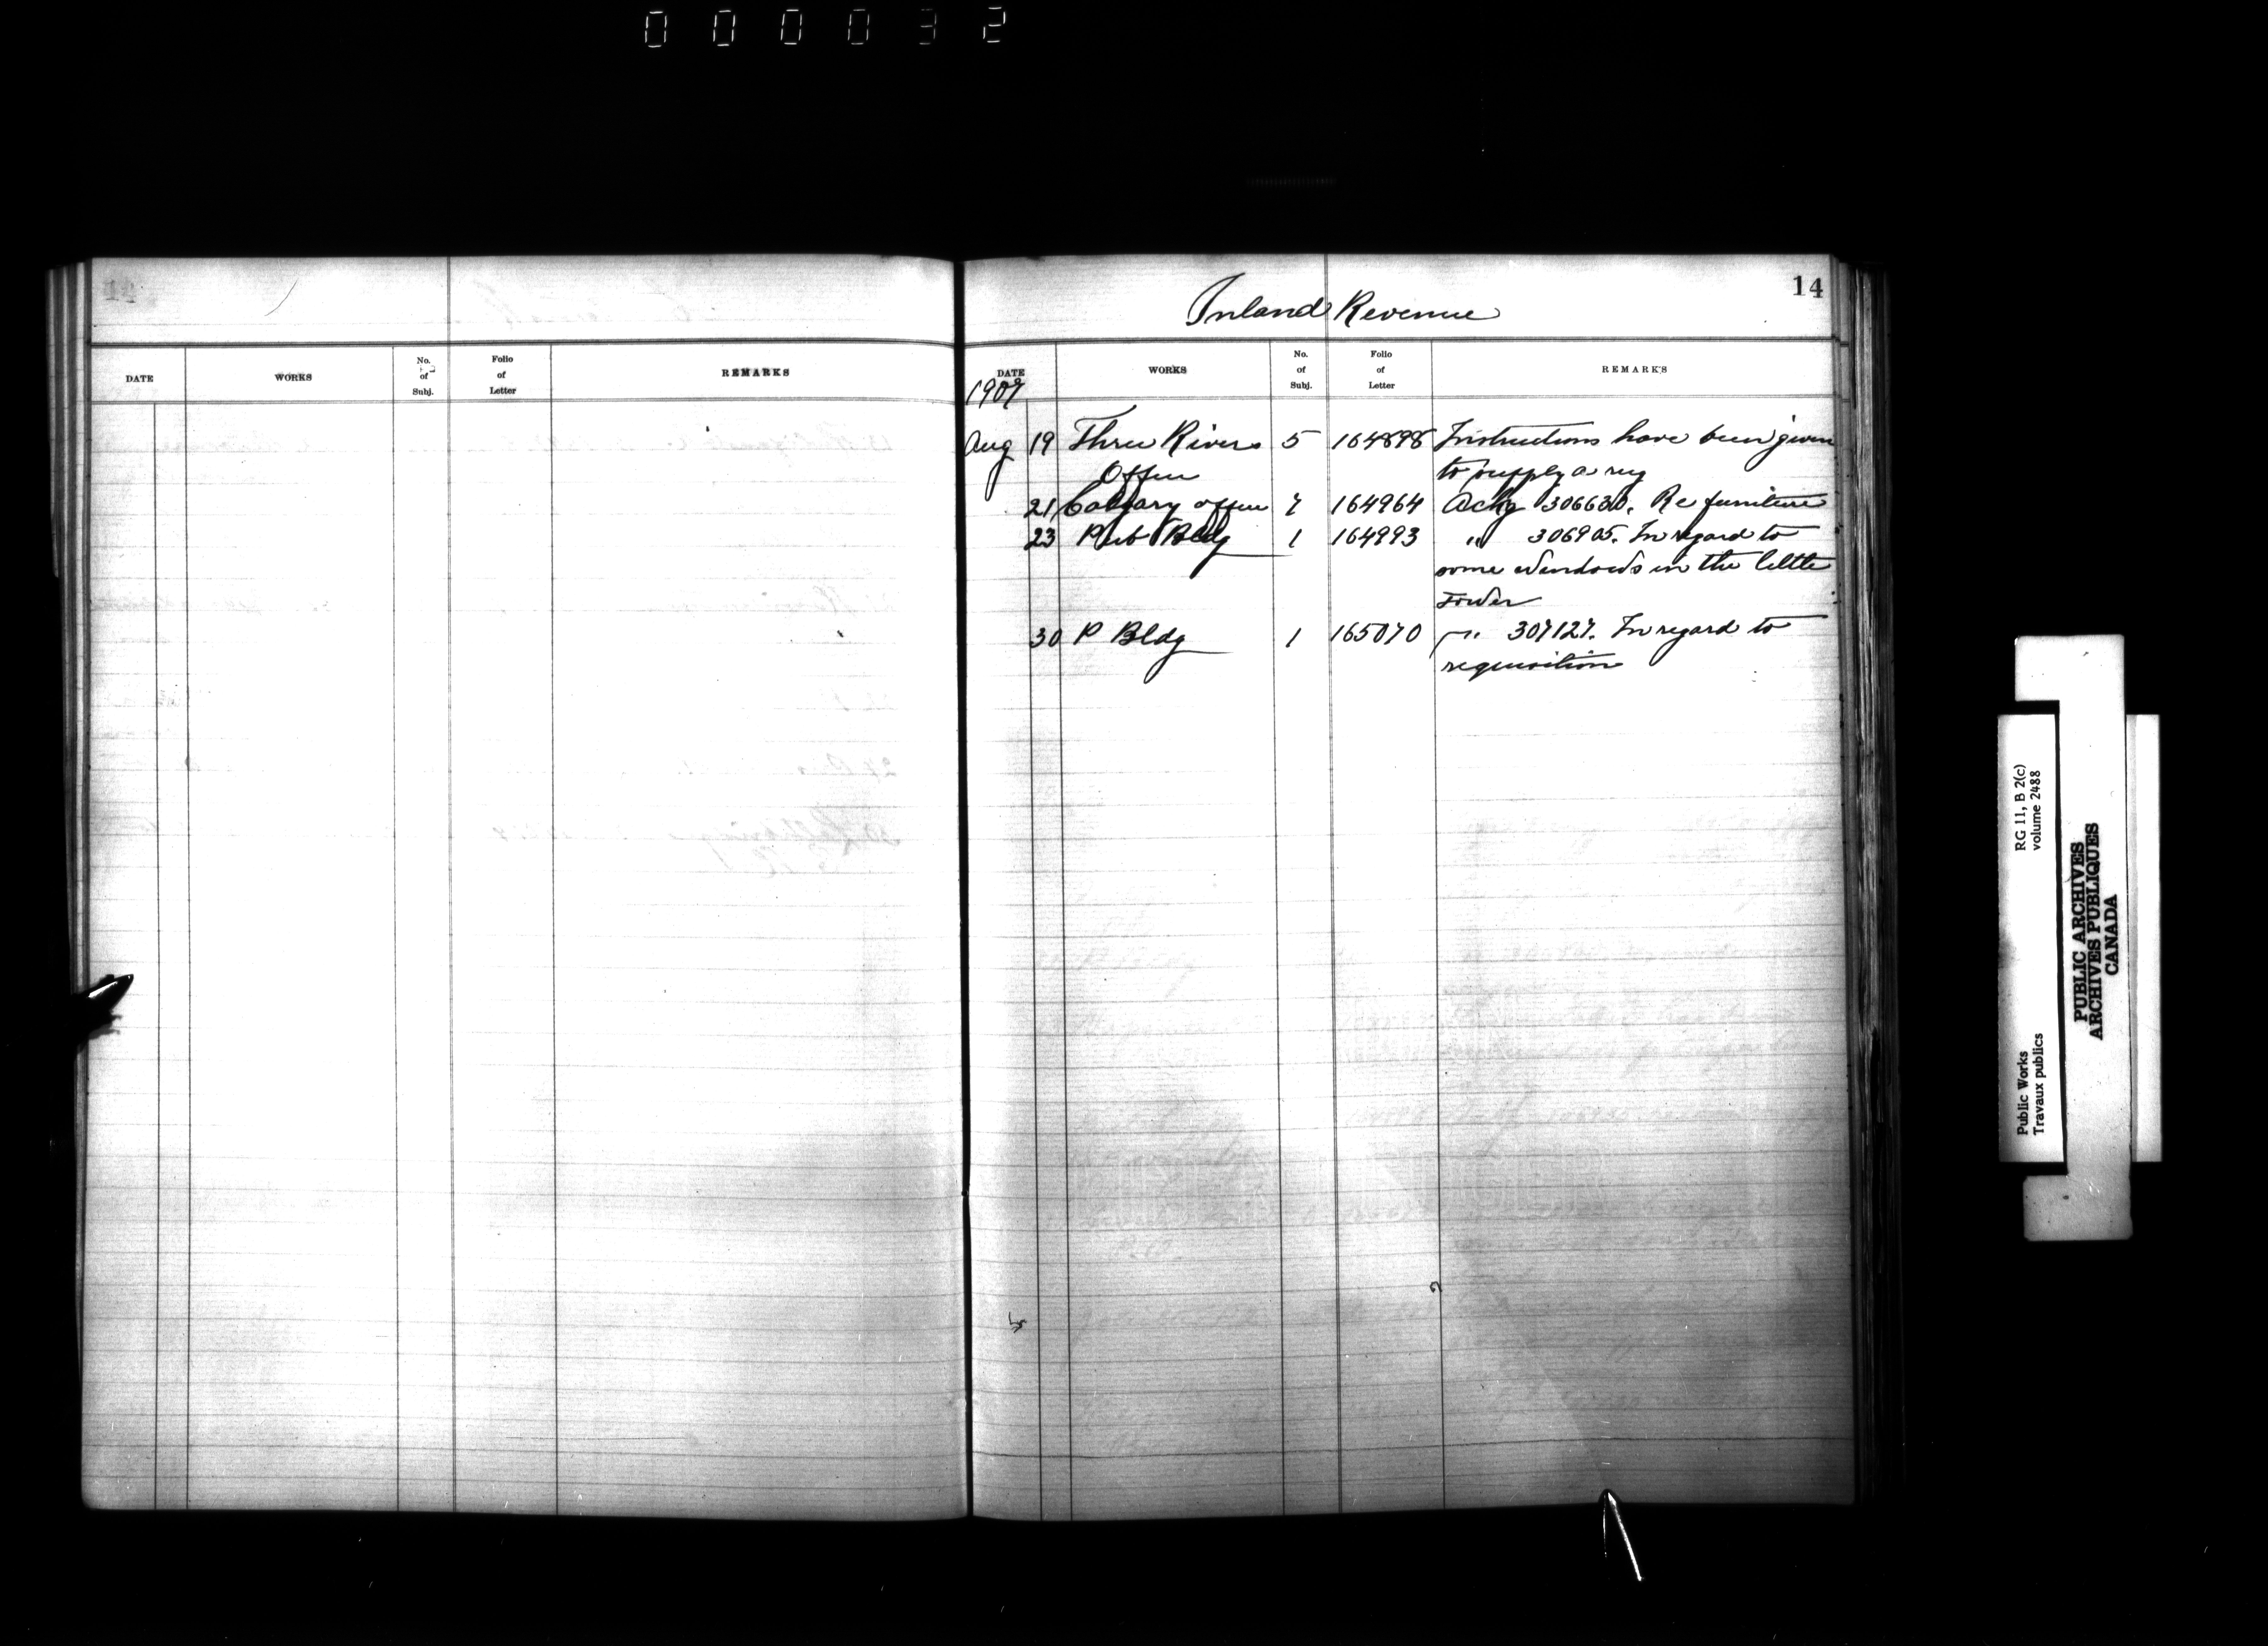 000032
14
Inland Revenue
DATE WORKS No. of Subj. Folio of Letter REMARKS
DATE WORKS No. of Subj. Folio of Letter REMARKS
1907
Aug 19 Three Rivers 5 164898 Instructions have been given
Office to supply a rug
21 Calgary office 7 164964 Ackg 306630. Re furniture
23 Pub Bldg 1 164993 " 306905. In regard to
some windows in the little
Tower
30 P Bldg 1 165070 " 307127. In regard to
requisition
RG 11, B 2(c)
volume 2488
Public Works
Travaux publics
PUBLIC ARCHIVES
ARCHIVES PUBLIQUES
CANADA